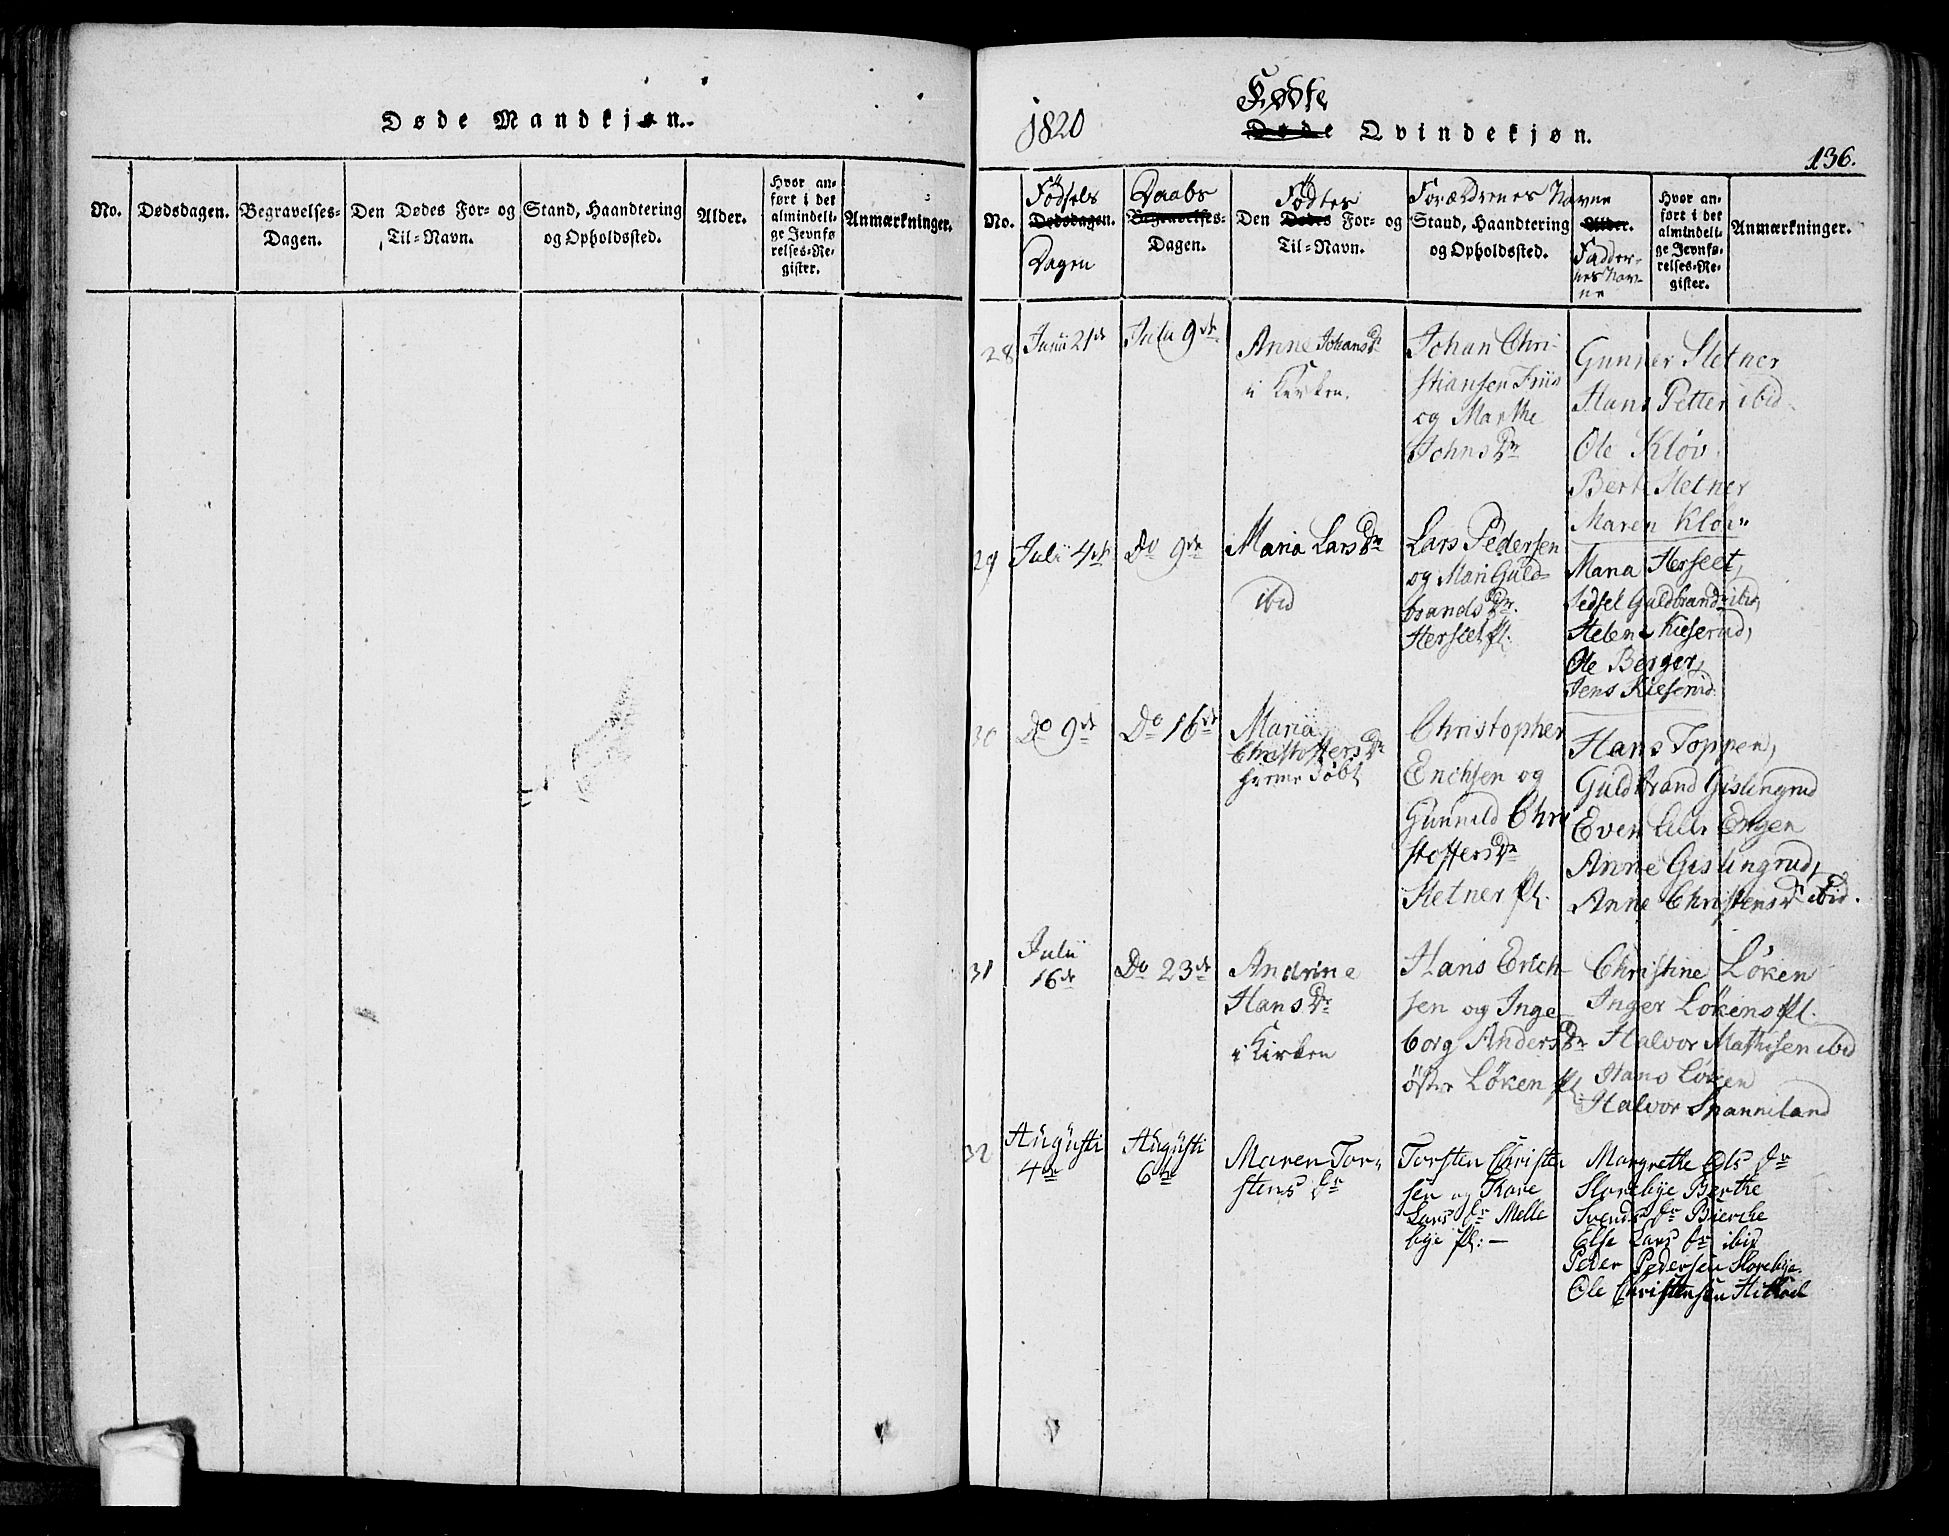 Døde Mandkjøn.
No.
Dødsdagen.
Begravelses-
Dagen.
Den Dødes For- og
Til-Navn.
Stand, Haandtering
og Opholdssted.
Alder.
Hvor an-
ført i det
almindeli-
ge Jevnfø
relses-Re-
gister.
Anmærkninger.
1820
Fødte
Døde Qvindekjøn.
136.
No.
Fødsels
Dødsdagen.
Dagen
Daabs
Begravelses-
Dagen.
Fødtes
Den Dødes For- og
Til-Navn.
Forældrenes Navne
Stand, Haandtering
og Opholdssted.
Alder.
Fadder-
nes Nav-
ne
Hvor an-
ført i det
almindeli-
ge Jevnfø-
relses-Re-
gister.
Anmærkninger.
28
Junii 21de
Julii 9de
Anne Johans Dr
i Kirken.
Johan Chri-
stiansen Friis
og Marthe
Johns Dr
Gunner Sletner
Hans Petter ibid.
Ole Kløv.
Berte Sletner
Maren Kløv
29
Julii 4de
Do 9de
Maria Lars Dr
ibid
Lars Pedersen
og Mari Guld-
brands Dr.
Herseet pl.
Maria Herseet,
Sedsel Guldbrands Dr ibid,
Helene Kieserud,
Ole Berger,
Jens Kieserud.
30
Do 9de
Do 16de
Maria
Christoffers Dr
hiemedøbt
Christopher
Erichsen og
Gunnild Chri
stoffers Dr
Sletner pl.
Hans Toppen,
Guldbrand Gislingrud
Even Lille Engen
Anne Gislingrud,
Anne Christens Dr ibid.
31
Julii
16de
Do 23de
Andrine
Hans Dr
i Kirken
Hans Erich-
sen og Inge
borg Anders Dr
østre Løken pl.
Christine Løken
Inger Løkens pl.
Halvor Mathisen ibid
Hans Løken
Halvor Spanneland
32
Augusti
4de
Augusti
6te
Maren Tor-
stens Dr
Torsten Christen
sen og Kare
Lars Dr Melle
bye pl: —
Margrethe Ols Dr
Slorebye Berthe
Svends Dr Bierche
Else Lars Dr ibid
Peder Pedersen Slorebye.
Ole Christensen